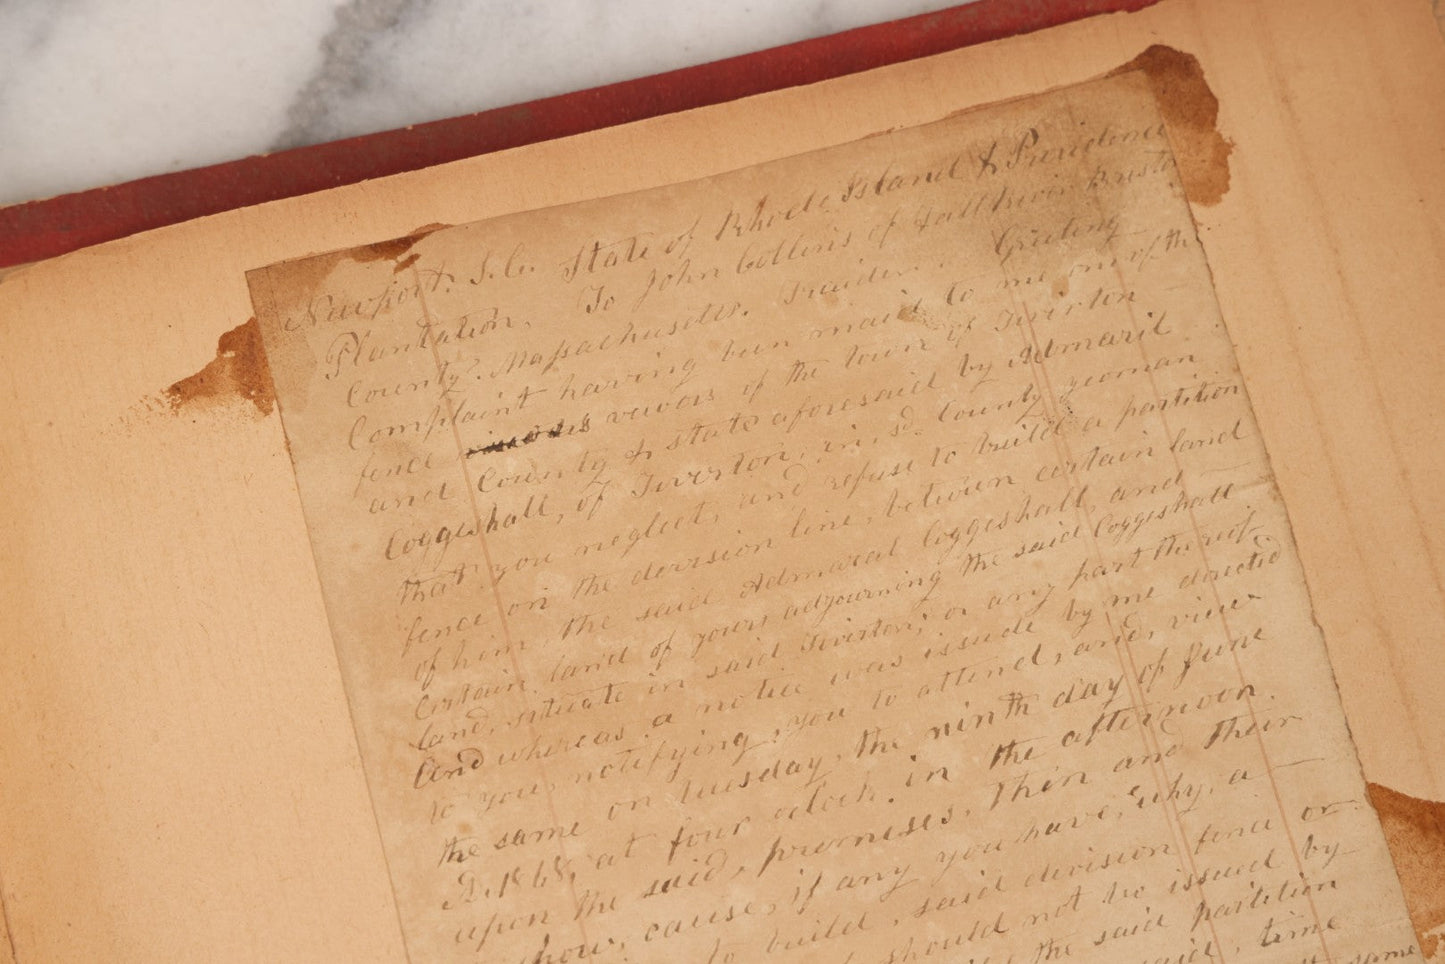 Newport. S.C. State of Rhode Island & Providence
Plantation. To John Collins of Fall River Bristo
County. Massachusetts. Greeting
Complaint having been maid to me one of the
fence vewors of the town of Tiverton
and County & state aforesaid by Admaril
Coggeshall, of Tiverton, in, sd. County yeoman
that you neglect, and refuse to build a partition
fence on the devision line, between certain land
of him the said Admaral Coggeshall, and
Certain land of yours adjourning the said Coggeshall
land, situate in said Tiverton, or any part there of
And whereas a notice was issude by me directed
to you, notifying, you to attend, and, view
the same on tuesday, the ninth day of June
D. 1868, at four oclock, in the afternoon.
upon the said, premeses, then and their
show, cause, if any you have, why, a
to build, said division fence or
should not be issued by
the said partition
said, time
same